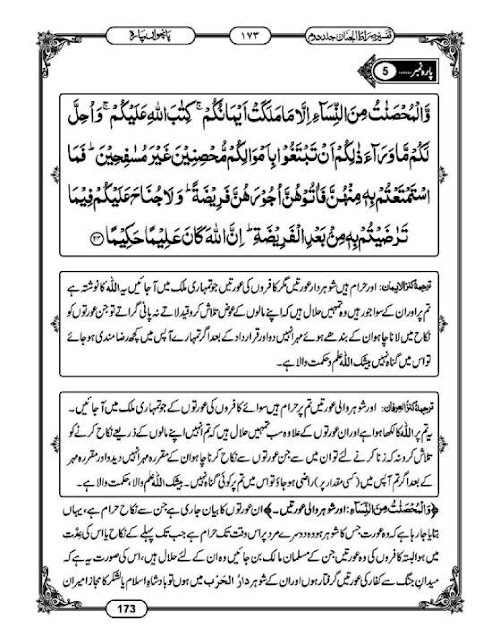 تفسیر صراط الجنان جلد دوم
۱۷۳
پانچواں پارہ
پارہ نمبر ...... 5
وَّالْمُحْصَنٰتُ مِنَ النِّسَآءِ اِلَّا مَا مَلَكَتْ اَیْمَانُكُمْۚ-كِتٰبَ اللّٰهِ عَلَیْكُمْۚ-وَ اُحِلَّ
لَكُمْ مَّا وَرَآءَ ذٰلِكُمْ اَنْ تَبْتَغُوْا بِاَمْوَالِكُمْ مُّحْصِنِیْنَ غَیْرَ مُسٰفِحِیْنَؕ-فَمَا
اسْتَمْتَعْتُمْ بِهٖ مِنْهُنَّ فَاٰتُوْهُنَّ اُجُوْرَهُنَّ فَرِیْضَةًؕ-وَ لَا جُنَاحَ عَلَیْكُمْ فِیْمَا
تَرٰضَیْتُمْ بِهٖ مِنْۢ بَعْدِ الْفَرِیْضَةِؕ-اِنَّ اللّٰهَ كَانَ عَلِیْمًا حَكِیْمًا(۲۴)
ترجمۂ کنزالایمان: اور حرام ہیں شوہر دار عورتیں مگر کافروں کی عورتیں جو تمہاری ملک میں آجائیں یہ اللہ کا نوشتہ ہے
تم پر اور ان کے سوا جو رہیں وہ تمہیں حلال ہیں کہ اپنے مالوں کے عوض تلاش کرو قید لاتے نہ پانی گراتے تو جن عورتوں کو
نکاح میں لانا چاہو ان کے بندھے ہوئے مہر انہیں دو اور قرارداد کے بعد اگر تمہارے آپس میں کچھ رضامندی ہو جائے
تو اس میں گناہ نہیں بیشک اللہ علم و حکمت والا ہے۔
ترجمۂ کنزالعرفان: اور شوہر والی عورتیں تم پر حرام ہیں سوائے کافروں کی عورتوں کے جو تمہاری ملک میں آجائیں۔
یہ تم پر اللہ کا لکھا ہوا ہے اور ان عورتوں کے علاوہ سب تمہیں حلال ہیں کہ تم انہیں اپنے مالوں کے ذریعے نکاح کرنے کو
تلاش کرو نہ کہ زنا کرنے کے لئے تو ان میں سے جن عورتوں سے نکاح کرنا چاہو ان کے مقررہ مہر انہیں دیدو اور مقررہ مہر
کے بعد اگر تم آپس میں (کسی مقدار پر) راضی ہو جاؤ تو اس میں تم پر کوئی گناہ نہیں۔ بیشک اللہ علم والا، حکمت والا ہے۔
﴿وَالْمُحْصَنٰتُ مِنَ النِّسَآءِ: اور شوہر والی عورتیں۔﴾ ان عورتوں کا بیان جاری ہے جن سے نکاح حرام ہے، یہاں
بتایا جا رہا ہے کہ وہ عورت جس کا شوہر ہو وہ دوسرے مرد پر اس وقت تک حرام ہے جب تک پہلے کے نکاح یا اس کی عدت
میں ہو البتہ کافروں کی وہ عورتیں جن کے مسلمان مالک بن جائیں وہ ان کے لئے حلال ہیں، اس کی صورت یہ ہے کہ
میدانِ جنگ سے کفار کی عورتیں گرفتار ہوں اور ان کے شوہر دارُ الحَرْب میں ہوں تو بادشاہِ اسلام یا لشکر کا مجاز امیر ان
173